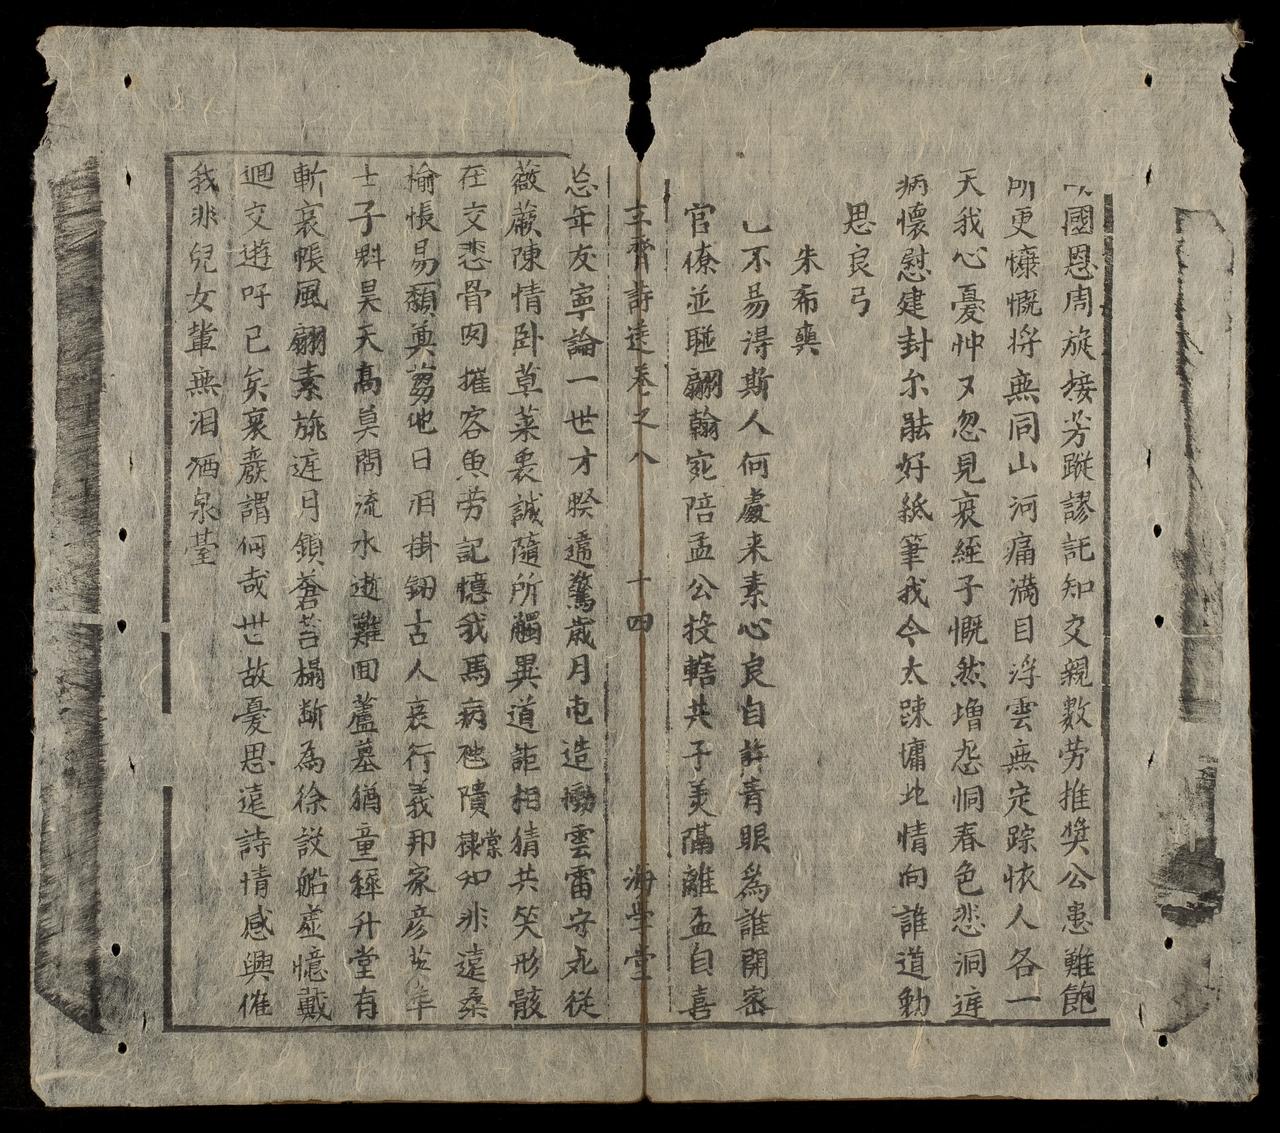 國恩周旋接芳蹤謬託知交親數劳推獎公患難飽
所更慷慨将無同山河痛滿目浮雲無定踪恢人各一
天我心憂忡又忽見衰絰子慨然增怨恫春色悲洞遅
病懷慰建封尓能好紙筆我今太踈慵北情向誰道動
思良弓
朱希奭
已不易得斯人何處来素心良自許青眼為誰開寀
官僚並聮翩翰宛陪孟公投轄共子羙隔離盃自喜
詩選卷之八 十四 海學堂
忘年友寧論一世才睽違驚歳月屯造勷雲雷守死従
薇蕨陳情卧草萊褁誠隨所觸異道詎相猜共笑形骸
在交悲骨肉摧容魚劳記憶我馬病虺隤棣棠知非遠桑
榆悵易頽奠蒭他日泪掛釰古人哀行義邦家彦
士子魁昊天高莫問流水逝難回蘆墓猶童穉升堂有
斬哀帳風翩素旐遅月鎖蒼苔榻断為徐設船虚憶戴
迴交遊吁已矣衰廢謂何哉世故憂思遠詩情感興催
我非兒女輩無泪洒泉臺